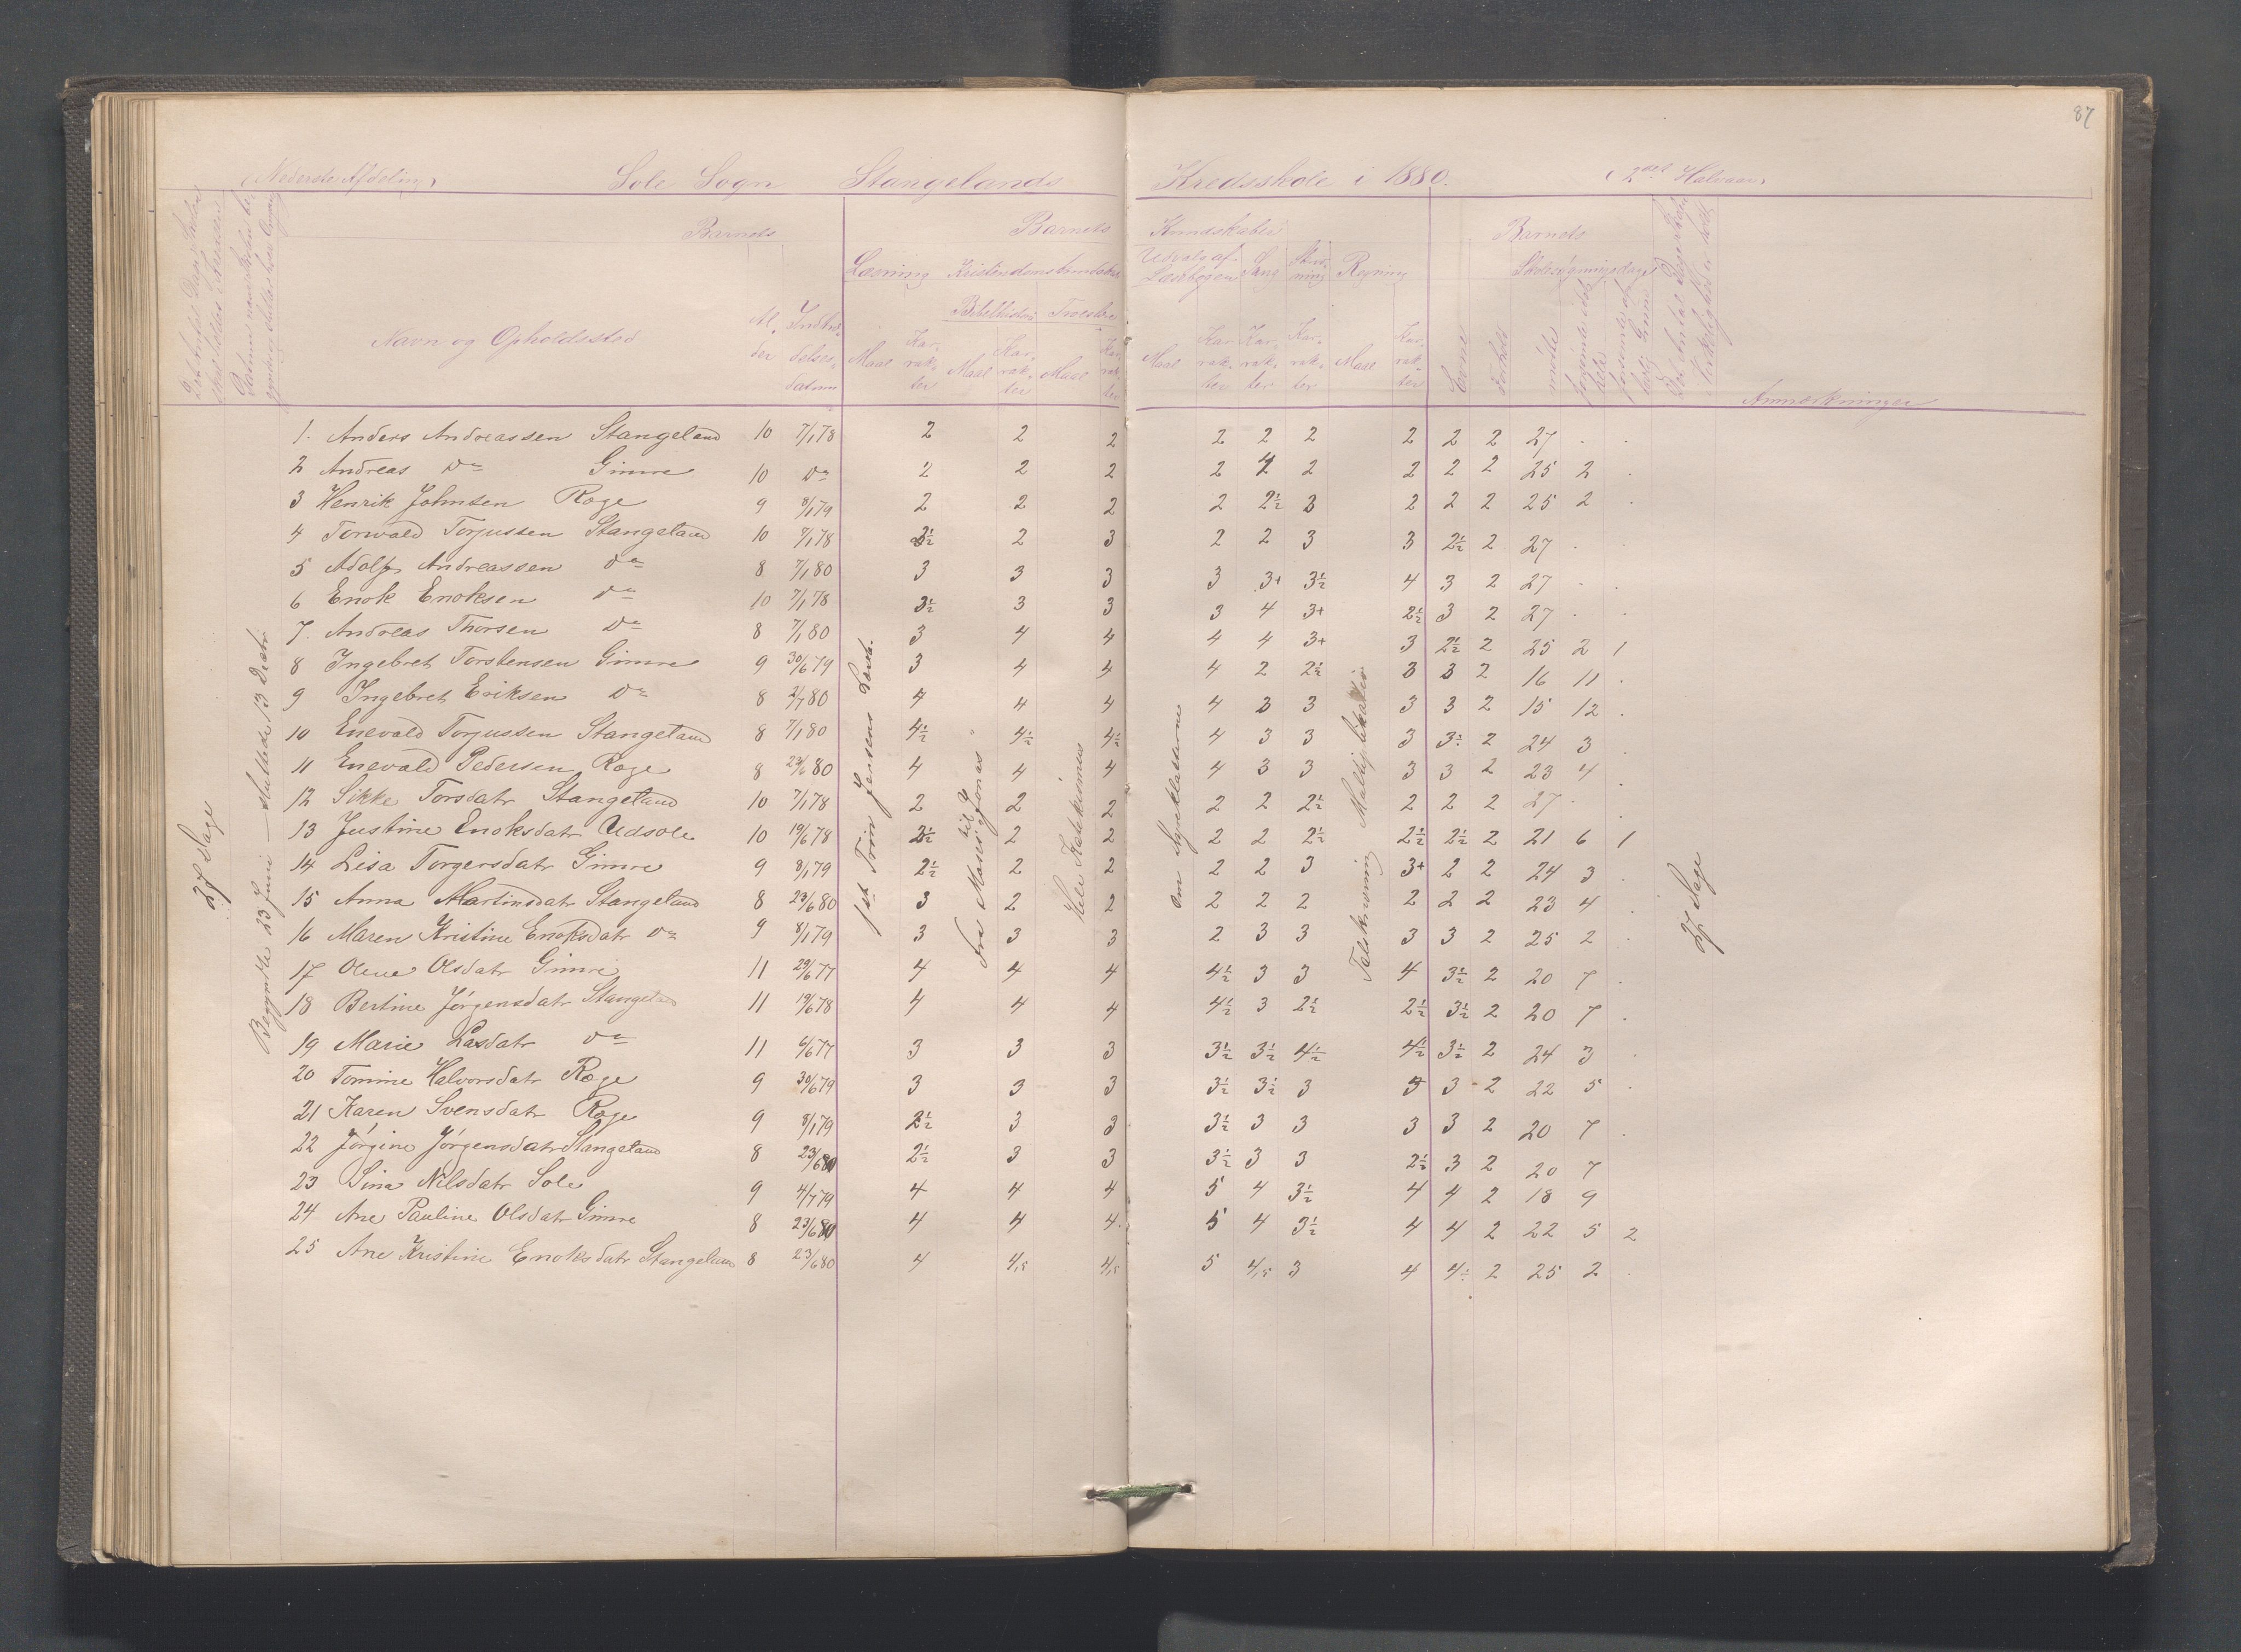 87
(Nederste Afdeling) Sole Sogn Stangelands Kredsskole i 1880. (2det Halvaar)
Barnets Barnets Kundskaber Barnets
Læsning Kristendomskundskab Udvalg af Læsebogen Sang Skrivning Regning Skolesøgningsdage
Bibelhistorie Troeslære
Navn og Opholdssted Alder Indtrædelsesdatum Maal Karakter Maal Karakter Maal Karakter Maal Karakter Karakter Karakter Maal Karakter Evne Forhold mødte forsømte i det hele forsømte af lovlig Grund Anmærkninger
27 Dage
Begyndte 23 Juni — sluttede 13 Decbr
1ste Trin Jensens Læseb.
Fra Moses til Jonas
Hele Katekismus
Om Dyreklasserne
Talskrivning Multiplikation
27 Dage
1. Anders Andreassen Stangeland 10 7/1 78 2 2 2 2 2 2 2 2 2 27 . .
2 Andreas Do Gimre 10 Do 2 2 2 2 4 2 2 2 2 25 2 .
3 Henrik Johnsen Røge 9 8/1 79 2 2 2 2 2½ 3 2 2 2 25 2 .
4 Torvald Torjussen Stangeland 10 7/1 78 3½ 2 3 2 2 3 3 2½ 2 27 . .
5 Adolf Andreassen Do 8 7/1 80 3 3 3 3 3+ 3½ 4 3 2 27 . .
6 Enok Enoksen Do 10 7/1 78 3½ 3 3 3 4 3+ 2½ 3 2 27 . .
7. Andreas Thorsen Do 8 7/1 80 3 4 4 4 4 3+ 3 2½ 2 25 2 1
8 Ingebret Torstensen Gimre 9 30/6 79 3 4 4 4 2 2½ 3 3 2 16 11 .
9 Ingebret Eriksen Do 8 2/7 80 4 4 4 4 3 3 3 3 2 15 12 .
10 Enevald Torjussen Stangeland 8 7/1 80 4½ 4½ 4½ 4 3 3 3 3½ 2 24 3 .
11 Enevald Pedersen Røge 8 23/6 80 4 4 4 4 3 3 3 3 2 23 4 .
12 Sikke Torsdatr Stangeland 10 7/1 78 2 2 2 2 2 2½ 2 2 2 27 . .
13 Justine Enoksdatr Udsole 10 19/6 78 2½ 2 2 2 2 2½ 2½ 2½ 2 21 6 1
14 Lisa Torgersdatr Gimre 9 8/1 79 2½ 2 2 2 2 3 3+ 2 2 24 3 .
15 Anna Martinsdatr Stangeland 8 23/6 80 3 2 2 2 2 2 2 2 2 23 4 .
16 Maren Kristine Enoksdatr Do 9 8/1 79 3 3 3 2 3 3 3 3 2 25 2 .
17 Olene Olsdatr Gimre 11 29/6 77 4 4 4 4½ 3 3 4 3½ 2 20 7 .
18 Bertine Jørgensdatr Stangeland 11 19/6 78 4 4 4 4½ 3 2½ 2½ 3½ 2 20 7 .
19 Marie Lasdatr Do 11 6/6 77 3 3 3 3½ 3½ 4½ 4½ 3½ 2 24 3 .
20 Tomine Halvorsdatr Røge 9 30/6 79 3 3 3 3½ 3½ 3 3 3 2 22 5 .
21 Karen Svensdatr Røge 9 8/1 79 2½ 3 3 3½ 3 3 3 3 2 20 7 .
22 Jørgine Jørgensdatr Stangeland 8 23/6 80 2½ 3 3 3½ 3 3 2½ 3 2 20 7
23 Sina Nilsdatr Sole 9 4/7 79 4 4 4 5 4 3½ 4 4 2 18 9
24 Ane Pauline Olsdatr Gimre 8 23/6 80 4 4 4. 5 4 3½ 4 4 2 22 5 2
25 Ane Kristine Enoksdatr Stangeland 8 23/6 80 4 4,5 4,5 5 4,5 3 4 4½ 2 25 2 .